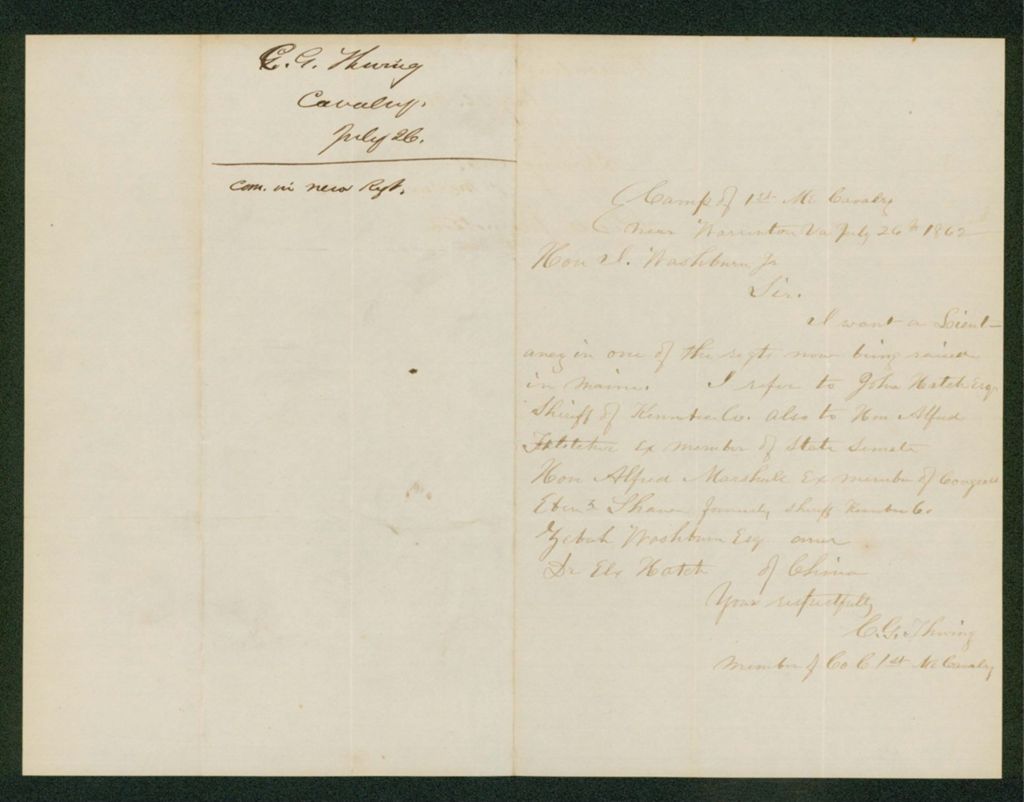 C. G. Thwing
Cavalry.
July 26.
Com. in new Rgt.
Camp of 1st Me Cavalry
near Warrenton Va July 26th 1862
Hon I. Washburn Jr
Sir.
I want a Lieut-
ancy in one of the regts now being raised
in Maine. I refer to John Hatch Esq.
Sheriff of Kennebec Co. also to Hon Alfred
Fletcher Ex member of State Senate
Hon Alfred Marshall Ex member of Congress
Ebenr Shaw formerly sheriff Kennebec Co.
Zebah Washburn Esq
Dr Hatch of China
Your respectfully
C. G. Thwing
Member of Co C 1st Me Cavalry